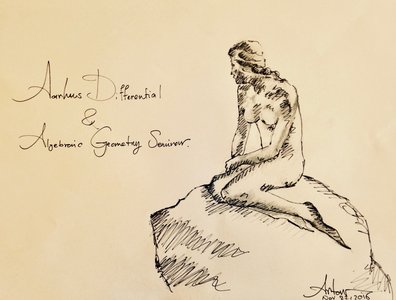 Aarhus Differential
&
Algebraic Geometry Seminar.
Nov 2016